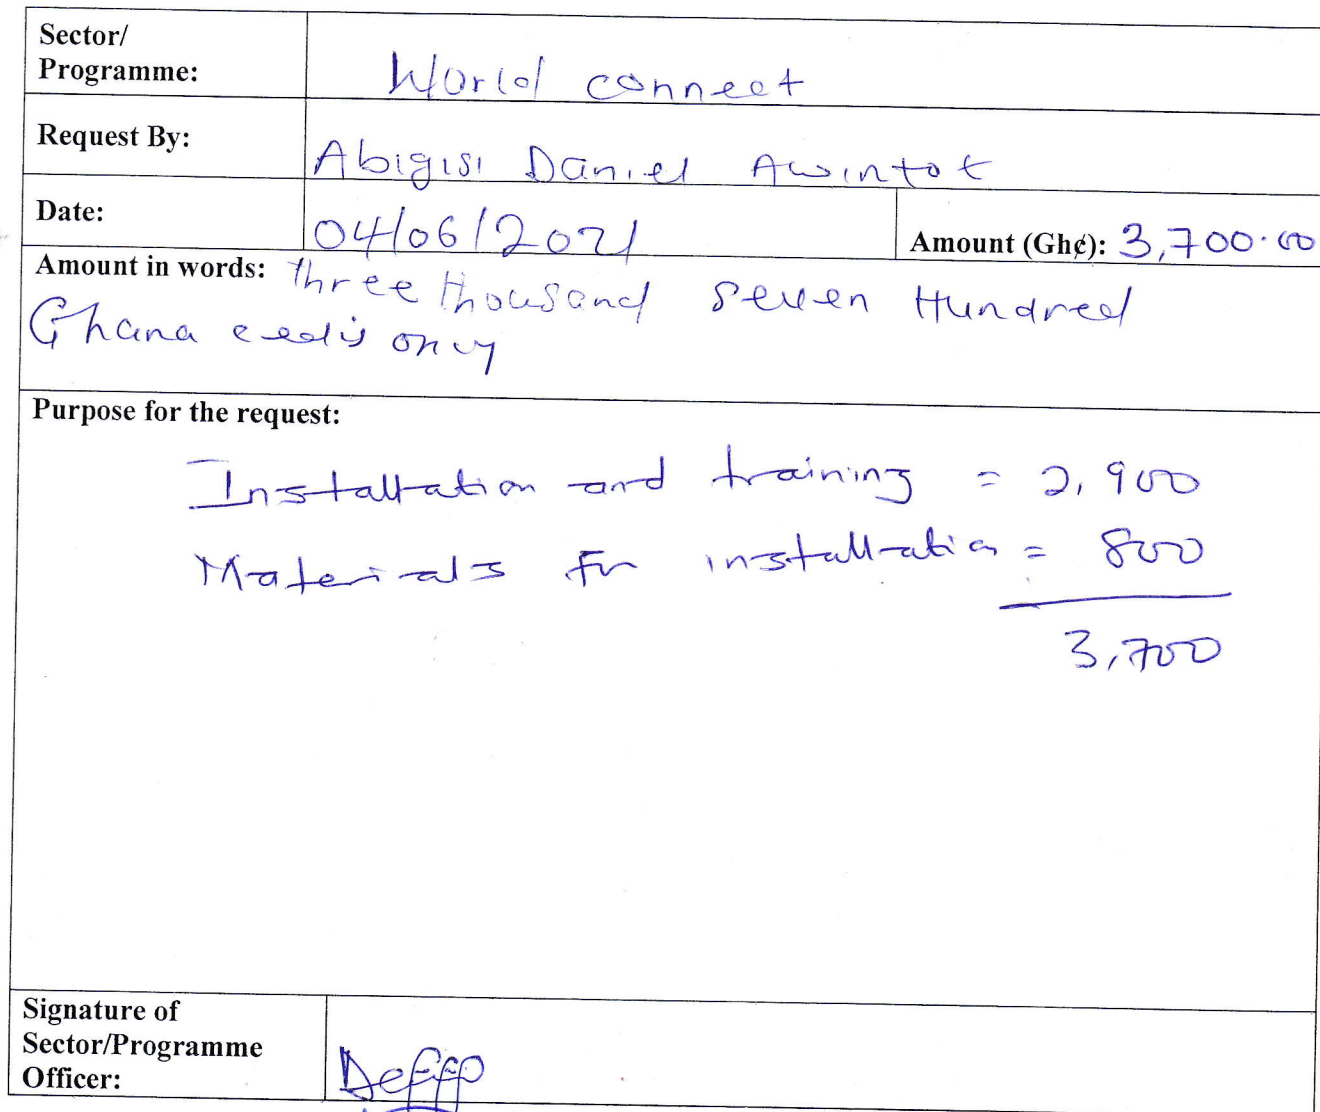 Sector/
Programme: World connect
Request By: Abigisi Daniel Awintot
Date: 04/06/2021 Amount (Gh¢): 3,700.00
Amount in words: three thousand seven Hundred
Ghana cedis only
Purpose for the request:
Installation and training = 2,900
Materials for installation = 800
3,700
Signature of
Sector/Programme
Officer: